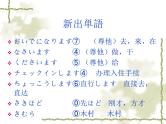 新出単語
おいでになります⑦ （尊他）去，来，在
なさいます ④ （尊他）做，干
くださいます ④ （尊他）给
チェックインします⑤ 办理入住手续
ちょっこうします⑥ 直行します 直接去，
直达
さきほど ⓪ さっき 刚才，方才
きむら ⓪ 木村 木村